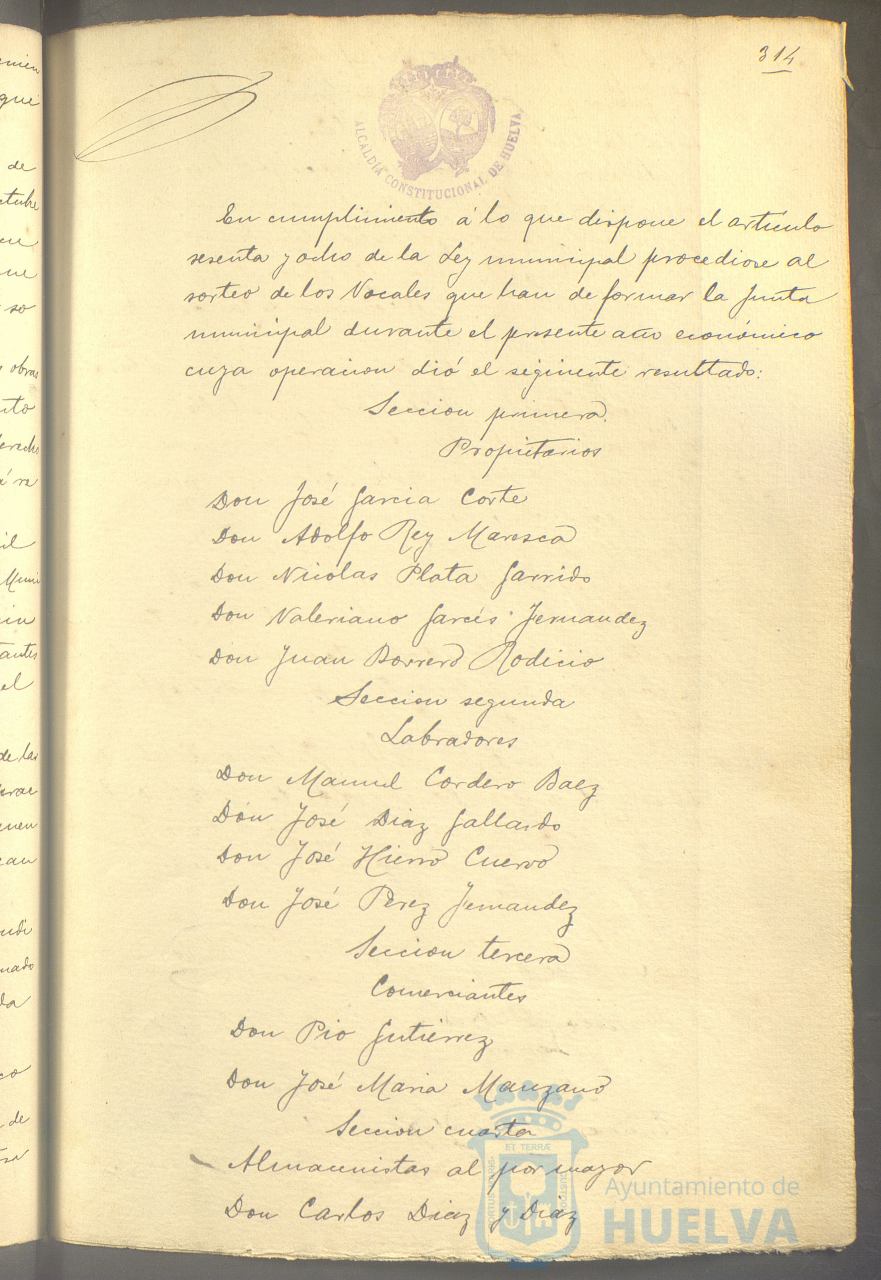 314
ALCALDÍA CONSTITUCIONAL DE HUELVA
En cumplimiento á lo que dispone el artículo
sesenta y ocho de la Ley municipal procediose al
sorteo de los Vocales que han de formar la Junta
municipal durante el presente año económico
cuya operacion dió el siginente resultado:
Seccion primera.
Propietarios
Don José Garcia Corte
Don Adolfo Rey Maresca
Don Nicolas Plata Garrido
Don Valeriano Garcés Fernandez
Don Juan Borrero Rodicio
Seccion segunda
Labradores
Don Manuel Cordero Baez
Don José Diaz Gallardo
Don José Hierro Cuervo
Don José Perez Fernandez
Seccion tercera
Comerciantes
Don Pio Gutiérrez
Don José Maria Manzano
Seccion cuarta
Almacenistas al por mayor
Don Carlos Diaz y Diaz
ET TERRÆ
Ayuntamiento de
HUELVA